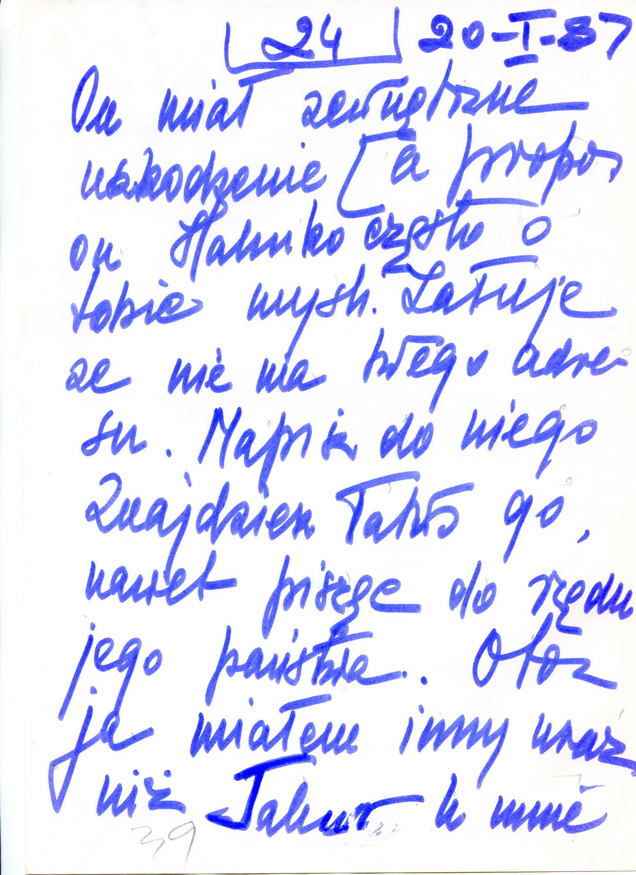 24 20-I-87
On miał zewnętrzne
uszkodzenie [a propos
on Halinko często o
tobie myśli. Żałuje
że nie ma twego adre-
su. Napisz do niego
Znajdziesz łatwo go,
nawet pisząc do rządu
jego państwa. Otóż
ja miałem inny uraz
niż u mnie
39